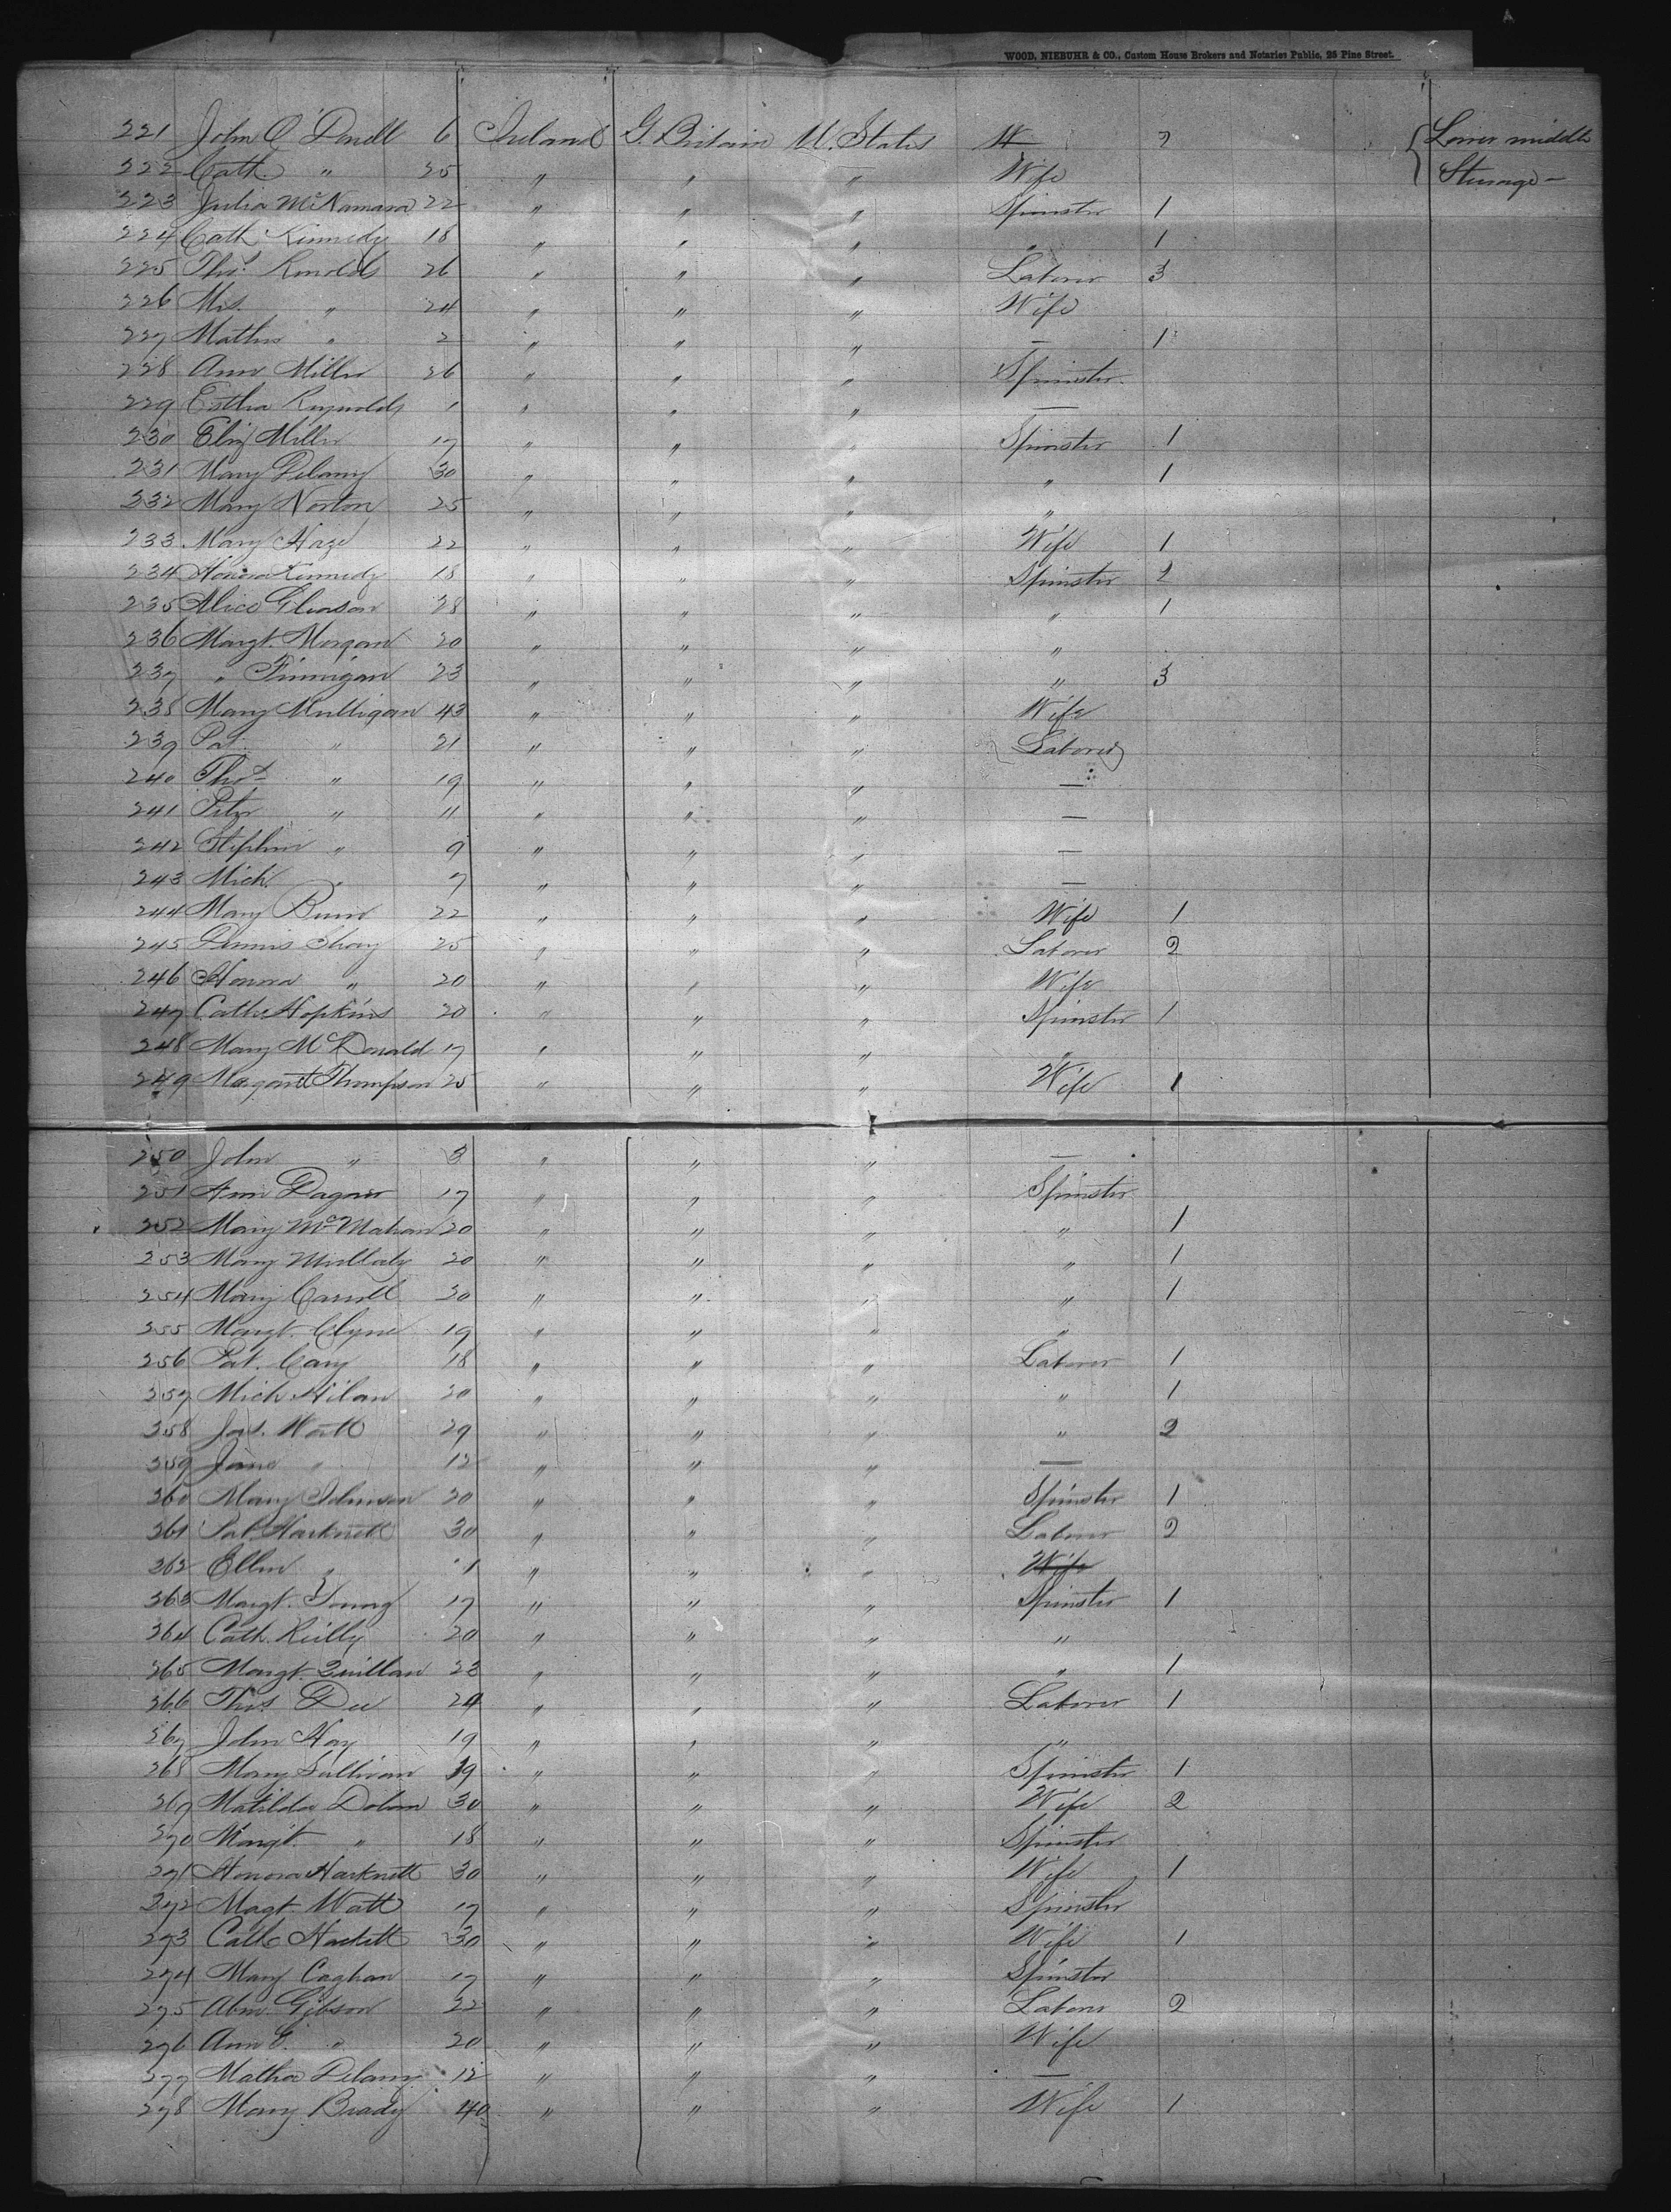 WOOD, NIEBUHR & CO., Custom House Brokers and Notaries Public, 25 Pine Street.
221 John O'Donell 6 Ireland G. Britain U. States 2 Lower middle
222 Cath. " 25 " " " Wife Steerage
223 Julia McNamara 22 " " " Spinster 1
224 Cath Kennedy 18 " " " " 1
225 Thos. Renolds 26 " " " Laborer 3
226 Mrs. " 24 " " " Wife
227 Mathew " 2 " " " — 1
228 Ann Miller 26 " " " Spinster
229 Esther Reynolds 1 " " " —
230 Eliz Miller 17 " " " Spinster 1
231 Mary Delany 30 " " " " 1
232 Mary Norton 25 " " " "
233 Mary Haze 22 " " " Wife 1
234 Honora Kennedy 18 " " " Spinster 2
235 Alice Gleason 28 " " " " 1
236 Margt. Morgan 20 " " " "
237 " Finnigan 23 " " " " 3
238 Mary Mulligan 43 " " " Wife
239 Pat " 21 " " " Laborer
240 Thos " 19 " " " —
241 Peter " 11 " " " —
242 Stephen " 9 " " " —
243 Mich. " 7 " " " —
244 Mary Burn 22 " " " Wife 1
245 Dennis Shay 25 " " " Laborer 2
246 Honora " 20 " " " Wife
247 Cath. Hopkins 20 " " " Spinster 1
248 Mary McDonald 17 " " " "
249 Margaret Thompson 25 " " " Wife 1
250 John " 3 " " " —
251 Ann 17 " " " Spinster
252 Mary McMahan 20 " " " " 1
253 Mary Mullaly 20 " " " " 1
254 Mary Carroll 20 " " " " 1
255 Margt. Clyne 19 " " " "
256 Pat. Cary 18 " " " Laborer 1
257 Mich 20 " " " " 1
258 Jas. Watt 29 " " " " 2
259 Jane " 12 " " " —
260 Mary Johnson 20 " " " Spinster 1
261 Pat. Harknett 30 " " " Laborer 2
262 Ellen " 1 " " " Wife
263 Margt. Young 17 " " " Spinster 1
264 Cath. Reilly 20 " " " "
265 Margt. Quillan 23 " " " " 1
266 Thos. Dee 24 " " " Laborer 1
267 John Hay 19 " " " "
268 Mary Sullivan 19 " " " Spinster 1
269 Matilda Dolan 30 " " " Wife 2
270 Margt. " 18 " " " Spinster
271 Honora Harknett 30 " " " Wife 1
272 Magt Watt 17 " " " Spinster
273 Cath Hackett 30 " " " Wife 1
274 Mary Caghan 17 " " " Spinster
275 Abm. Gibson 22 " " " Laborer 2
276 Ann E. " 20 " " " Wife
277 Matha Delany 12 " " " —
278 Mary Brady 40 " " " Wife 1